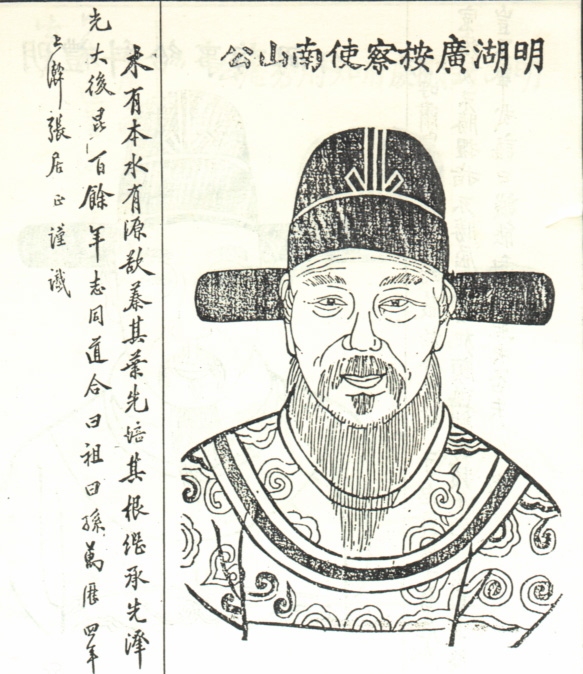 明湖廣按察使南山公
木有本水有源欲其葉先培其根繼承先澤
光大後昆百餘年志同道合曰祖曰孫萬曆四年
上澣張居正謹識